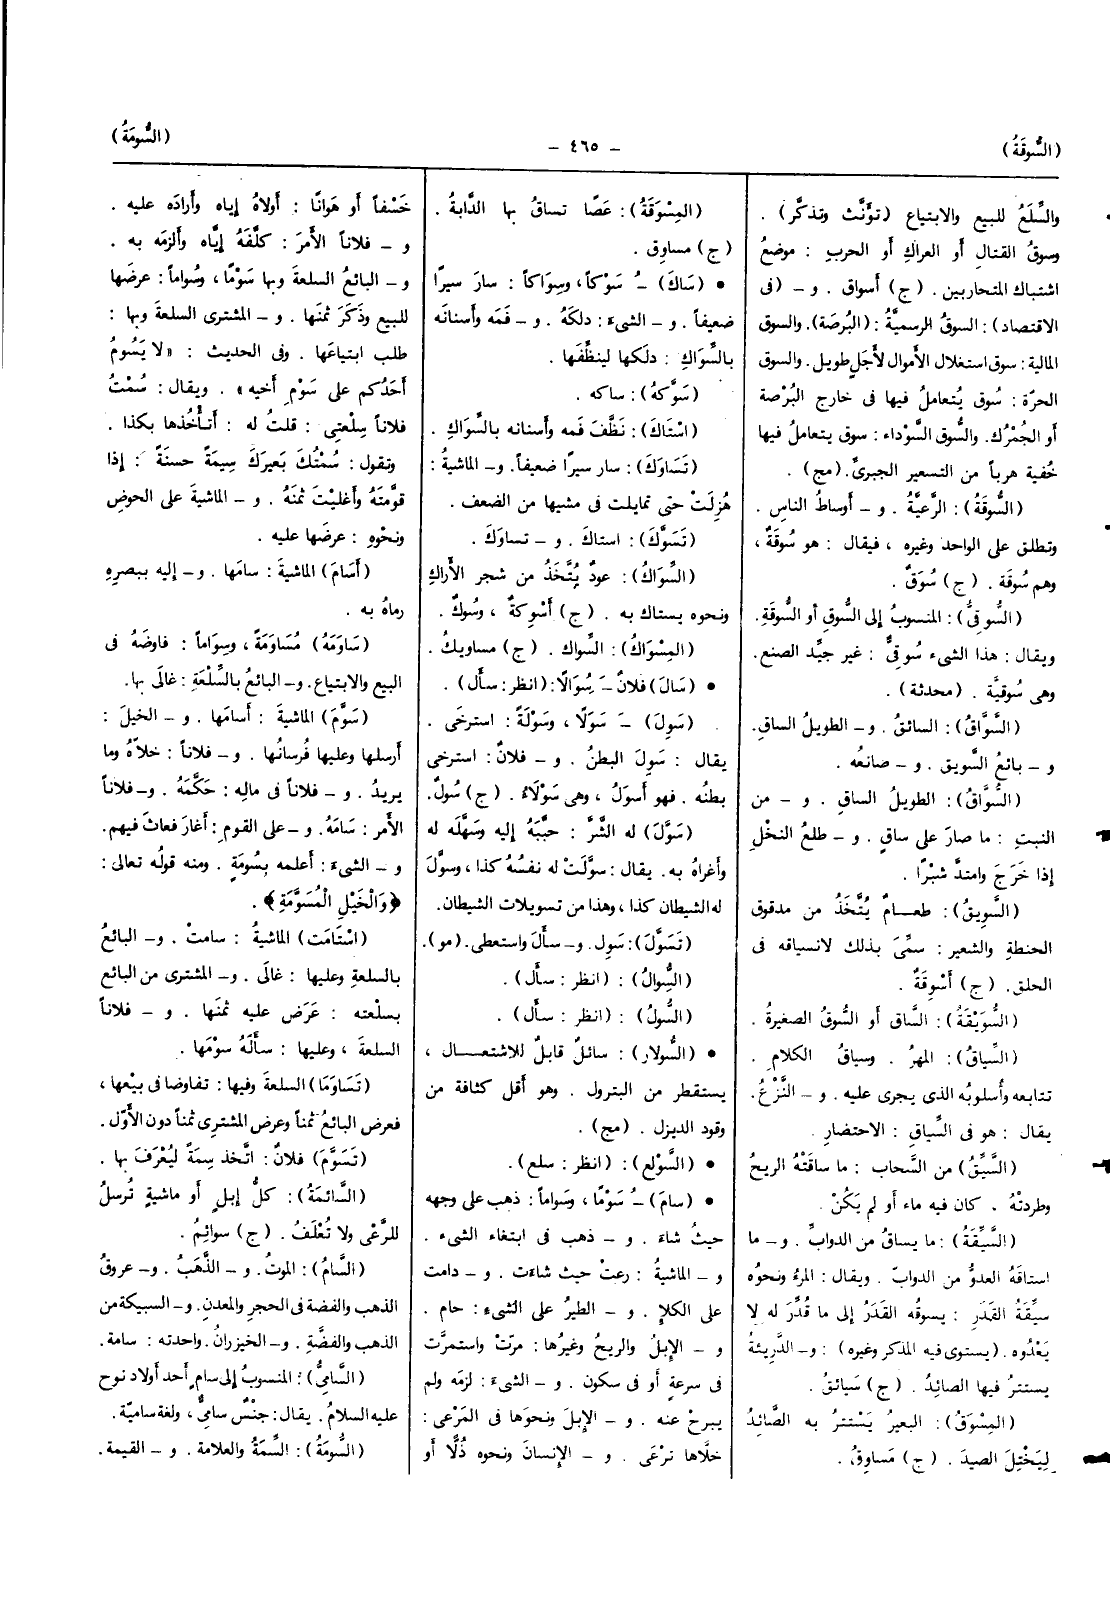 (السُّوقَةُ)
– ٤٦٥ –
(السُّومَةُ)
والسِّلَعُ للبيع والابتياع (تؤنَّث وتذكَّر) .
وسوقُ القتالِ أو العراكِ أو الحربِ : موضعُ
اشتباك المتحاربين . (ج) أسواق . و – (فى
الاقتصاد) : السوقُ الرسميَّةُ : (البُرصَة). والسوق
المالية : سوق استغلال الأموال لأجلٍ طويل. والسوق
الحرّة : سُوق يُتعاملُ فيها فى خارج البُرْصة
أو الجُمْرُك. والسُّوق السَّوْداء : سوق يتعاملُ فيها
خُفية هرباً من التسعير الجبرىّ. (مج) .
(السُّوقَةُ) : الرَّعيَّةُ . و – أوساطُ الناسِ .
وتطلق على الواحد وغيره ، فيقال : هو سُوقَةٌ ،
وهم سُوقَة . (ج) سُوَقٌ .
(السُّوقِىُّ) : المنسوبُ إلى السُّوق أو السُّوقَةِ.
ويقال : هذا الشىء سُوقِىٌّ : غير جيِّد الصنع.
وهى سُوقيَّة . (محدثة) .
(السَّوَّاقُ) : السائقُ . و – الطويلُ الساقِ.
و – بائعُ السَّويق . و – صانعُه .
(السُّوَّاقُ) : الطويلُ الساقِ . و – من
النبتِ : ما صارَ على ساقٍ . و – طلعُ النخْلِ
إذا خَرَجَ وامتدَّ شبْرًا .
(السَّوِيقُ) : طعـــام يُتَّخَذُ من مدقوق
الحنطةِ والشعير : سمِّىَ بذلك لانسياقه فى
الحلق. (ج) أسْوِقَةٌ .
(السُّوَيْقَةُ) : السَّاق أو السُّوقُ الصغيرةُ .
(السِّياقُ) : المهرُ . وسياقُ الكلامِ .
تتابعه وأُسلوبُه الذى يجرى عليه . و – النَّزْعُ.
يقال : هو فى السِّياقِ : الاحتضارِ .
(السَّيِّقُ) من السَّحاب : ما ساقَتْهُ الريحُ
وطردتْهُ . كان فيه ماء أو لم يَكُنْ .
(السَّيِّقَةُ) : ما يساقُ من الدوابِّ . و – ما
استاقَهُ العدوُّ من الدوابّ . ويقال : المرءُ ونحوُه
سيِّقَةُ القدَرِ : يسوقُه القَدَرُ إلى ما قُدِّرَ له لا
يَعْدُوه . (يستوى فيه المذكر وغيره) : و – الدَّرِيئةُ
يستترُ فيها الصائِدُ . (ج) سَيائقُ .
(المِسْوَقُ) : البعيرُ يَسْتترُ به الصَّائِدُ
لِيَخْتِلَ الصيدَ . (ج) مَساوِقُ .
(المِسْوَقَةُ) : عَصًا تساقُ بها الدَّابةُ .
(ج) مساوِق .
• (سَاكَ) –ُ سَوْكاً ، وسِوَاكاً : سارَ سيرًا
ضعيفاً . و – الشىءَ : دلكَهُ . و – فَمَه وأسنانَه
بالسِّواكِ : دلَكها لينظِّفَها .
(سَوَّكَهُ) : ساكه .
(اسْتَاكَ) : نَظَّفَ فَمه وأسنانه بالسِّوَاكِ .
(تَسَاوَكَ) : سار سيرًا ضعيفاً. و – الماشيةُ :
هُزِلَتْ حتى تمايلت فى مشيها من الضعف .
(تَسَوَّكَ) : استاك . و – تساوَكَ .
(السِّوَاكُ) : عودٌ يُتَّخَذُ من شجر الأَراكِ
ونحوه يستاك به . (ج) أَسْوِكةٌ ، وسُوكٌ .
(المِسْوَاكُ) : السِّواك . (ج) مساويكُ .
• (سَالَ) فلانٌ –َ سُوَالًا : (انظر : سأل) .
(سَوِلَ) –َ سَوَلًا ، وسَوْلَةً : استرخَى .
يقال : سَوِلَ البطنُ . و – فلانٌ : استرخى
بطنُه . فهو أسوَلُ ، وهى سَوْلَاءُ . (ج) سُولٌ.
(سَوَّلَ) له الشَّرَّ : حبَّبَهُ إليه وسَهَّلَه له
وأغراهُ به . يقال : سوَّلَتْ له نفسُهُ كذا ، وسولَ
له الشيطان كذا ، وهذا من تسويلات الشيطان.
(تَسَوَّلَ) : سَوِل. و – سأَلَ واستعطى. (مو).
(السُّوالُ) : (انظر : سأل) .
(السُّولُ) : (انظر : سأل) .
• (السُّولار) : سائلٌ قابلٌ للاشتعـــال ،
يستقطر من البترول . وهو أقل كثافة من
وقود الديزل . (مج) .
• (السَّوْلع) : (انظر : سلع).
• (سامَ) –ُ سَوْمًا ، وسَواماً : ذهب على وجهه
حيثُ شاءَ . و – ذهب فى ابتغاء الشىء .
و – الماشيةُ : رعتْ حيث شاءَت . و – دامت
على الكلإِ . و – الطيرُ على الشىءِ : حام .
و – الإبلُ والريحُ وغيرُها : مرّتْ واستمرَّت
فى سرعةٍ أو فى سكون . و – الشىءَ : لزمَه ولم
يبرحْ عنه . و – الإبلَ ونحوَها فى المَرْعى :
خلَّاها ترْعَى . و – الإنسانَ ونحوه ذُلًّا أو
خَسْفاً أو هَوانًا : أولاهُ إياه وأرادَه عليه .
و – فلاناً الأمرَ : كلَّفَهُ إيَّاه وألزمَه به .
و – البائعُ السلعةَ وبها سَوْمًا، وسُواماً : عرضَها
للبيع وذَكَرَ ثمنَها . و – المشترى السلعةَ وبها :
طلب ابتياعَها . وفى الحديث : « لا يَسُومُ
أحَدُكم على سَوْمِ أخيه » . ويقال : سُمْتُ
فلاناً سِلْعتِى : قلتُ له : أتأْخُذها بكذا .
وتقول : سُمْتُكَ بَعيرَكَ سِيمَةً حسنةً : إذا
قوَّمتَهُ وأغليْتَ ثمنَهُ . و – الماشيةَ على الحوضِ
ونحْوِه : عرضَها عليه .
(أسَامَ) الماشيةَ : سامَها . و – إليه ببصرِهِ
رماهُ به .
(سَاوَمَهُ) مُسَاوَمَةً ، وسِواماً : فاوضَهُ فى
البيع والابتياع. و – البائعُ بالسِّلْعَةِ : غالَى بها.
(سَوَّمَ) الماشيةَ : أسامَها . و – الخيلَ :
أرسلها وعليها فُرسانُها . و – فلاناً : خلَّاهُ وما
يريدُ . و – فلاناً فى مالِه : حَكَّمَهُ . و – فلاناً
الأمر : سَامَهُ. و – على القومِ : أغارَ فعاثَ فيهم.
و – الشىءَ : أعلمه بسُومَةٍ . ومنه قولُه تعالى :
﴿ وَالْخَيْلِ الْمُسَوَّمَةِ ﴾ .
(اسْتَامَت) الماشيةُ : سامتْ . و – البائعُ
بالسلعةِ وعليها : غالَى . و – المشترى من البائع
بسلْعته : عَرَض عليه ثمنَها . و – فلاناً
السلعةَ ، وعليها : سألَهُ سوْمَها .
(تَسَاوَمَا) السلعةَ وفيها : تفاوضا فى بيْعها ،
فعرض البائعُ ثمناً وعرض المشترى ثمناً دون الأَوّل.
(تَسَوَّمَ) فلانٌ : اتَّخذ سِمةً ليُعْرَفَ بها .
(السَّائمَةُ) : كلُّ إبلٍ أو ماشيةٍ تُرسلُ
للرَّعْى ولا تُعْلَفُ . (ج) سوائِمُ .
(السَّامُ) : الموتُ. و – الذَّهَبُ . و – عروقُ
الذهب والفضة فى الحجرِ والمعدنِ. و – السبيكة من
الذهب والفضَّةِ . و – الخيزرانُ . واحدته : سامة.
(السَّامِىُّ) : المنسوبُ إلى سام أحد أولاد نوح
عليه السلامُ. يقال : جنْسٌ سامىٌّ ، ولغة ساميّة.
(السُّومَةُ) : السِّمَةُ والعلامة . و – القيمة.